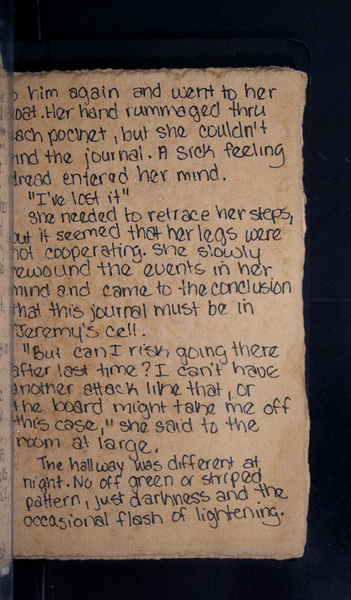 him again and went to her
coat. Her hand rummaged thru
each pocket, but she couldn't
find the journal. A sick feeling
dread entered her mind.
"I've lost it"
She needed to retrace her steps,
but it seemed that her legs were
not cooperating. She slowly
rewound the events in her
mind and came to the conclusion
that this journal must be in
Jeremy's cell.
"But can I risk going there
after last time? I can't have
another attack like that, or
the board might take me off
this case," she said to the
room at large.
The hallway was different at
night. No off green or striped
pattern, just darkness and the
occasional flash of lightening.